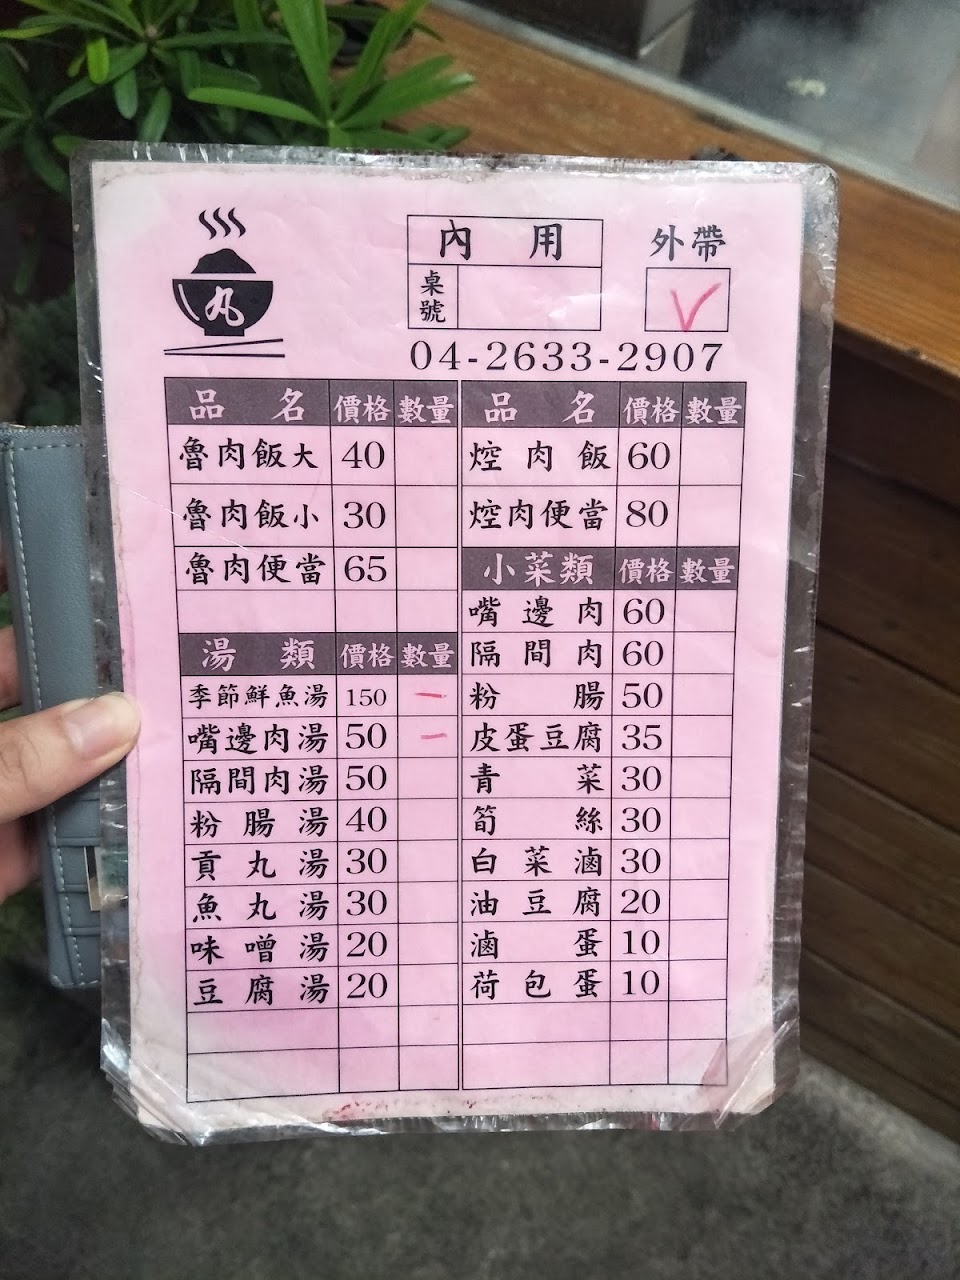 丸
內用
桌號
外帶
V
04-2633-2907
品名 價格 數量
魯肉飯大 40
魯肉飯小 30
魯肉便當 65
湯類 價格 數量
季節鮮魚湯 150 一
嘴邊肉湯 50 一
隔間肉湯 50
粉腸湯 40
貢丸湯 30
魚丸湯 30
味噌湯 20
豆腐湯 20
品名 價格 數量
焢肉飯 60
焢肉便當 80
小菜類 價格 數量
嘴邊肉 60
隔間肉 60
粉腸 50
皮蛋豆腐 35
青菜 30
筍絲 30
白菜滷 30
油豆腐 20
滷蛋 10
荷包蛋 10